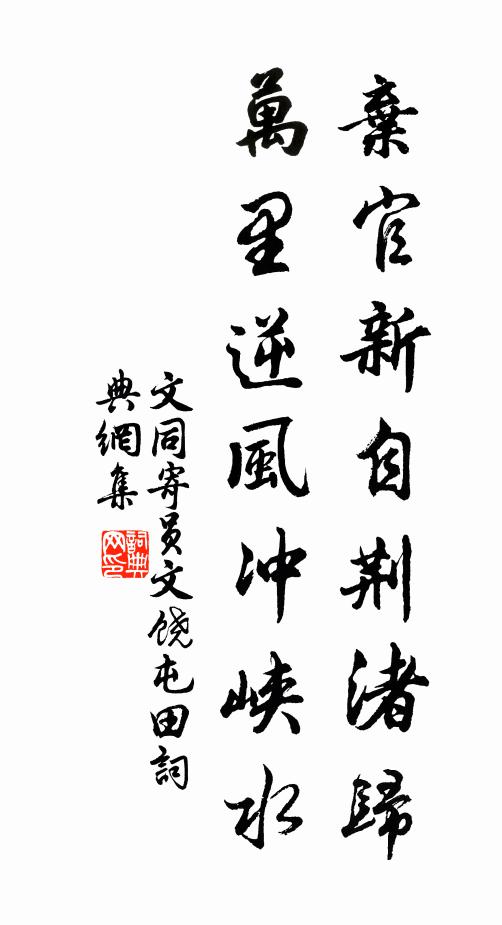 棄官新自荆渚歸
萬里逆風冲峽水
文同寄员文饶屯田詞
典網集
詞典
网印